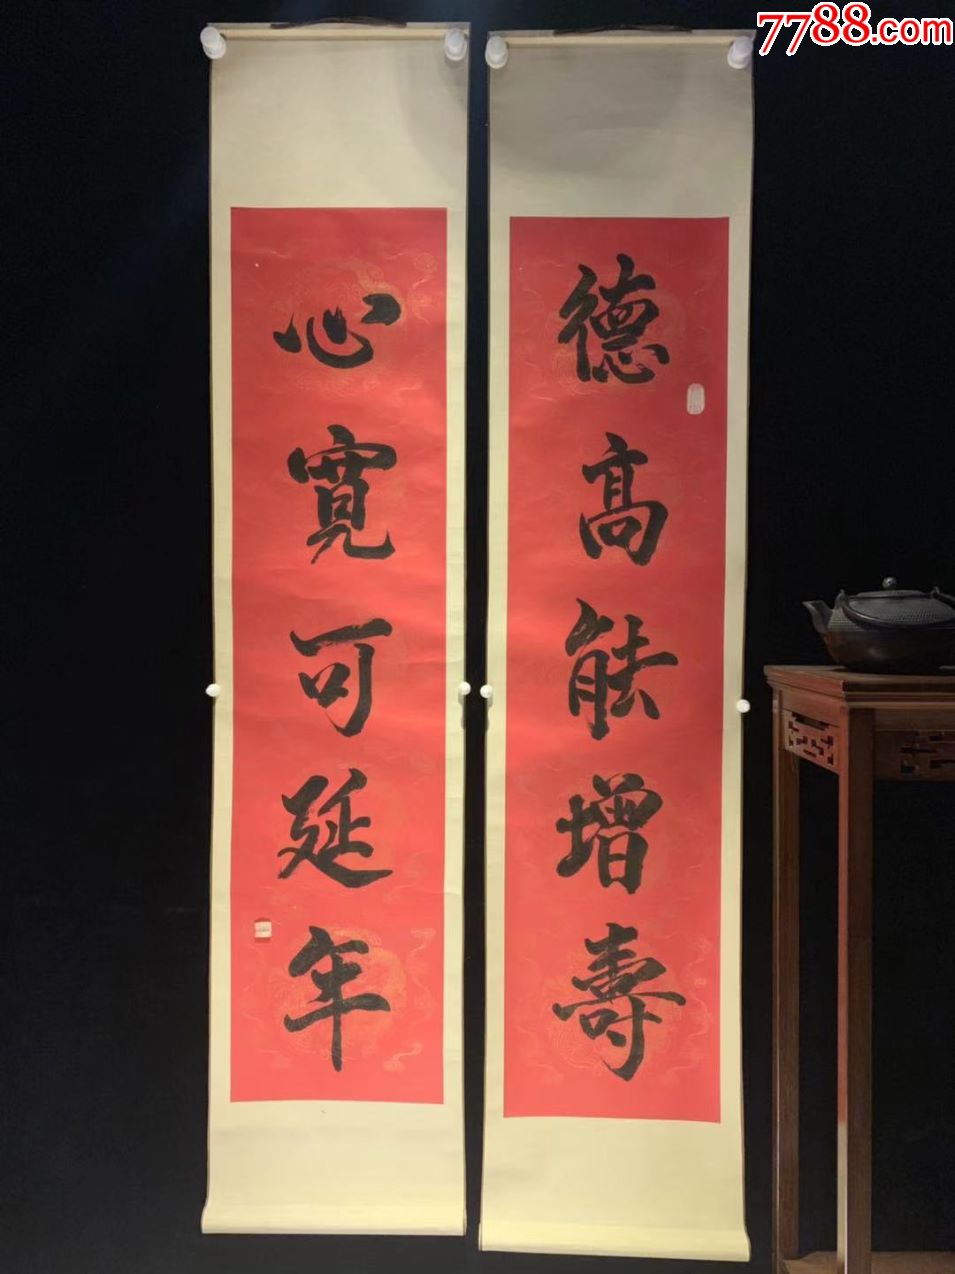 7788.com
德高能增壽
心寬可延年